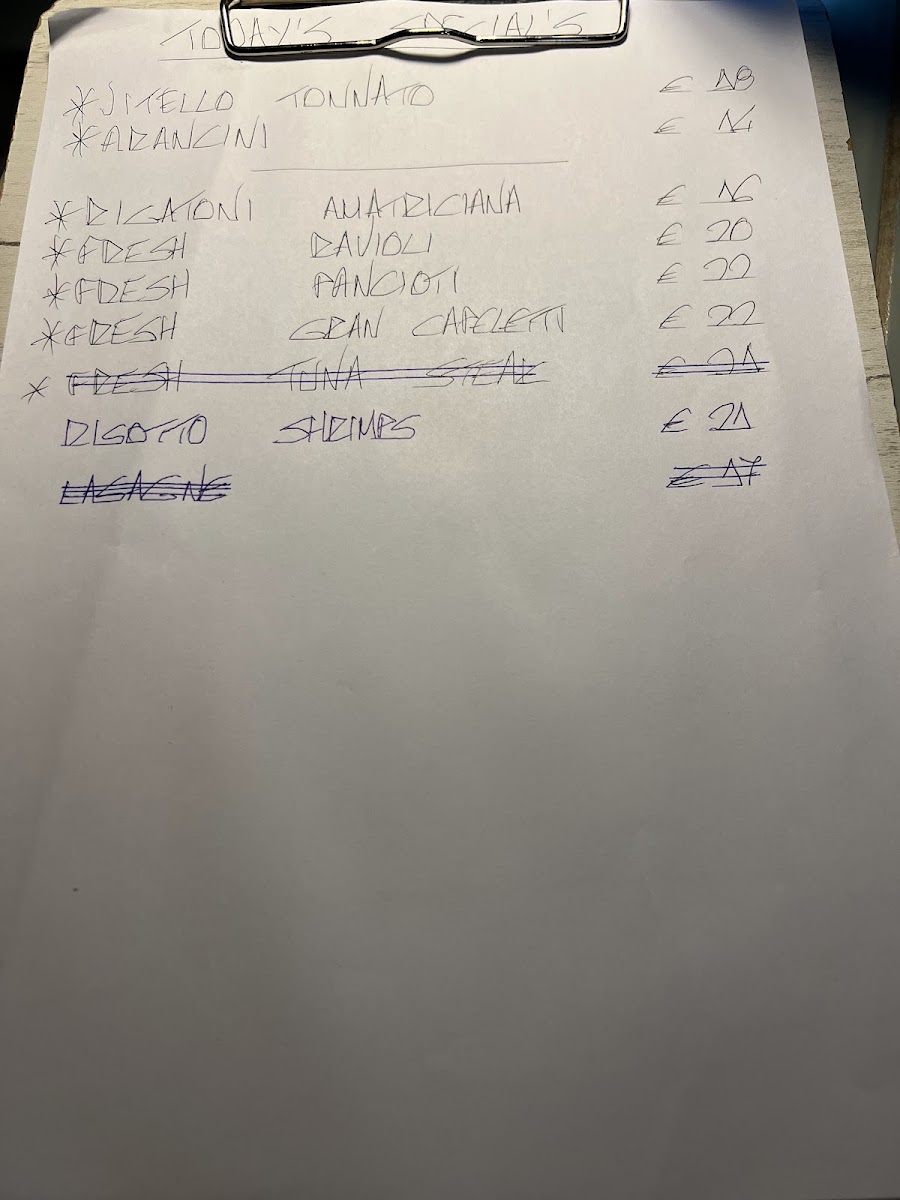 TODAY'S SPECIAL'S
*VITELLO TONNATO € 18
*ARANCINI € 14
*RIGATONI AMATRICIANA € 16
*FRESH RAVIOLI € 20
*FRESH PANCIOTI € 22
*FRESH GRAN CAPELETTI € 22
* FRESH TUNA STEAK € 21
RISOTTO SHRIMPS € 21
LASAGNE € 17